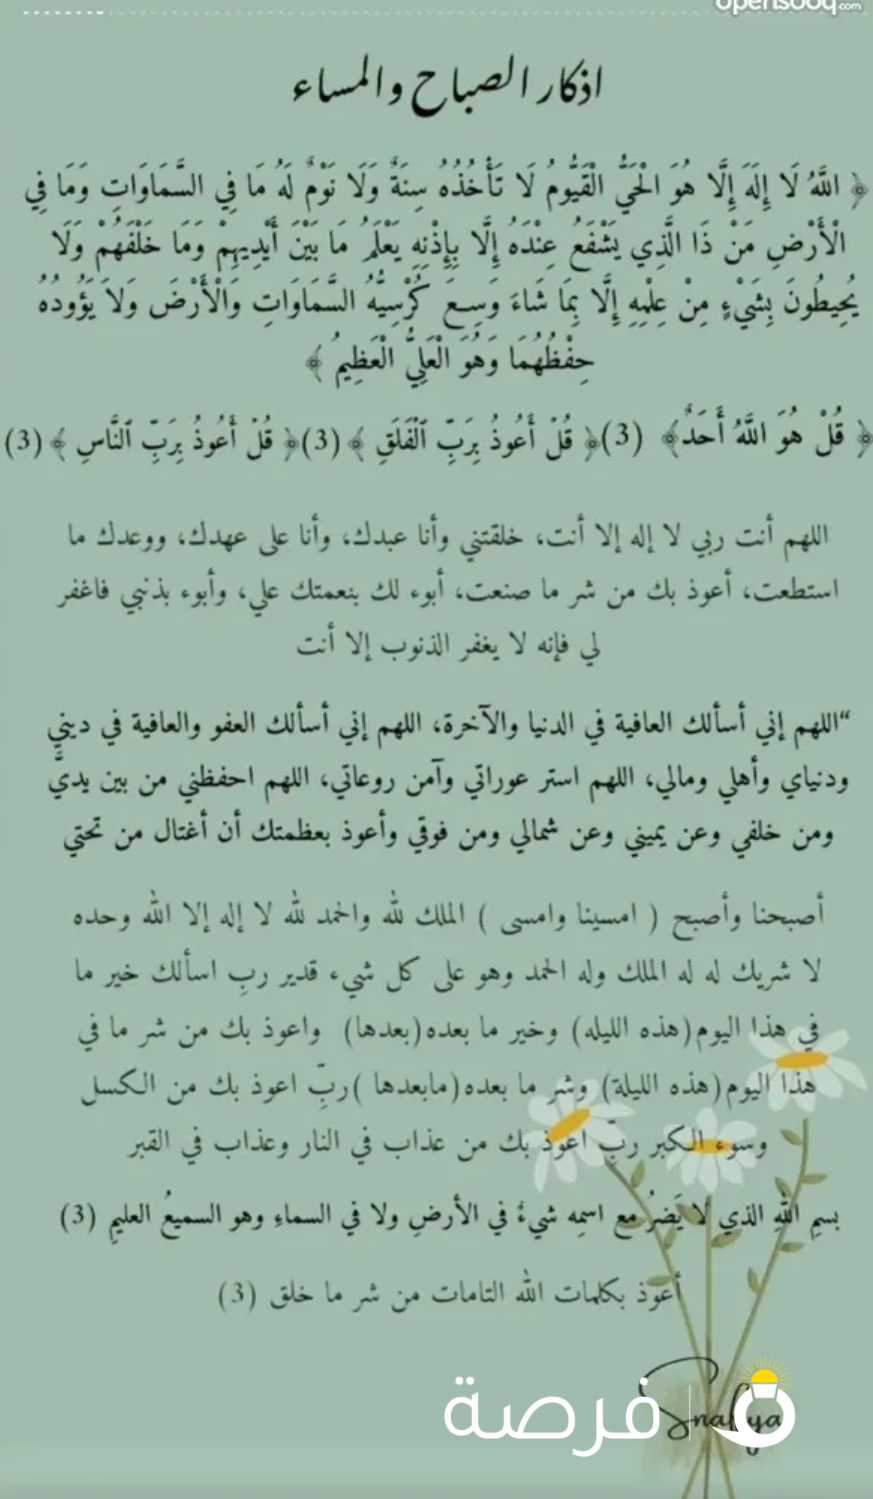 opensooq.com
اذكار الصباح والمساء
﴿ اللَّهُ لَا إِلَهَ إِلَّا هُوَ الْحَيُّ الْقَيُّومُ لَا تَأْخُذُهُ سِنَةٌ وَلَا نَوْمٌ لَهُ مَا فِي السَّمَاوَاتِ وَمَا فِي
الْأَرْضِ مَنْ ذَا الَّذِي يَشْفَعُ عِنْدَهُ إِلَّا بِإِذْنِهِ يَعْلَمُ مَا بَيْنَ أَيْدِيهِمْ وَمَا خَلْفَهُمْ وَلَا
يُحِيطُونَ بِشَيْءٍ مِنْ عِلْمِهِ إِلَّا بِمَا شَاءَ وَسِعَ كُرْسِيُّهُ السَّمَاوَاتِ وَالْأَرْضَ وَلَا يَؤُودُهُ
حِفْظُهُمَا وَهُوَ الْعَلِيُّ الْعَظِيمُ ﴾
﴿ قُلْ هُوَ اللَّهُ أَحَدٌ﴾ (3)﴿ قُلْ أَعُوذُ بِرَبِّ ٱلْفَلَقِ ﴾ (3)﴿ قُلْ أَعُوذُ بِرَبِّ ٱلنَّاسِ ﴾(3)
اللهم أنت ربي لا إله إلا أنت، خلقتني وأنا عبدك، وأنا على عهدك، ووعدك ما
استطعت، أعوذ بك من شر ما صنعت، أبوء لك بنعمتك علي، وأبوء بذنبي فاغفر
لي فإنه لا يغفر الذنوب إلا أنت
“اللهم إني أسألك العافية في الدنيا والآخرة، اللهم إني أسألك العفو والعافية في ديني
ودنياي وأهلي ومالي، اللهم استر عوراتي وآمن روعاتي، اللهم احفظني من بين يديَّ
ومن خلفي وعن يميني وعن شمالي ومن فوقي وأعوذ بعظمتك أن أغتال من تحتي
أصبحنا وأصبح ( امسينا وامسى ) الملك لله والحمد لله لا إله إلا الله وحده
لا شريك له له الملك وله الحمد وهو على كل شيء قدير ربِ اسألك خير ما
في هذا اليوم(هذه الليله) وخير ما بعده(بعدها) واعوذ بك من شر ما في
هذا اليوم(هذه الليلة) وشر ما بعده(مابعدها )ربِّ اعوذ بك من الكسل
وسوء الكبر ربِّ اعوذ بك من عذاب في النار وعذاب في القبر
بسمِ اللهِ الذي لا يَضرُ مع اسمِه شيءٌ في الأرضِ ولا في السماءِ وهو السميعُ العليمِ (3)
أعوذ بكلمات الله التامات من شر ما خلق (3)
فرصة